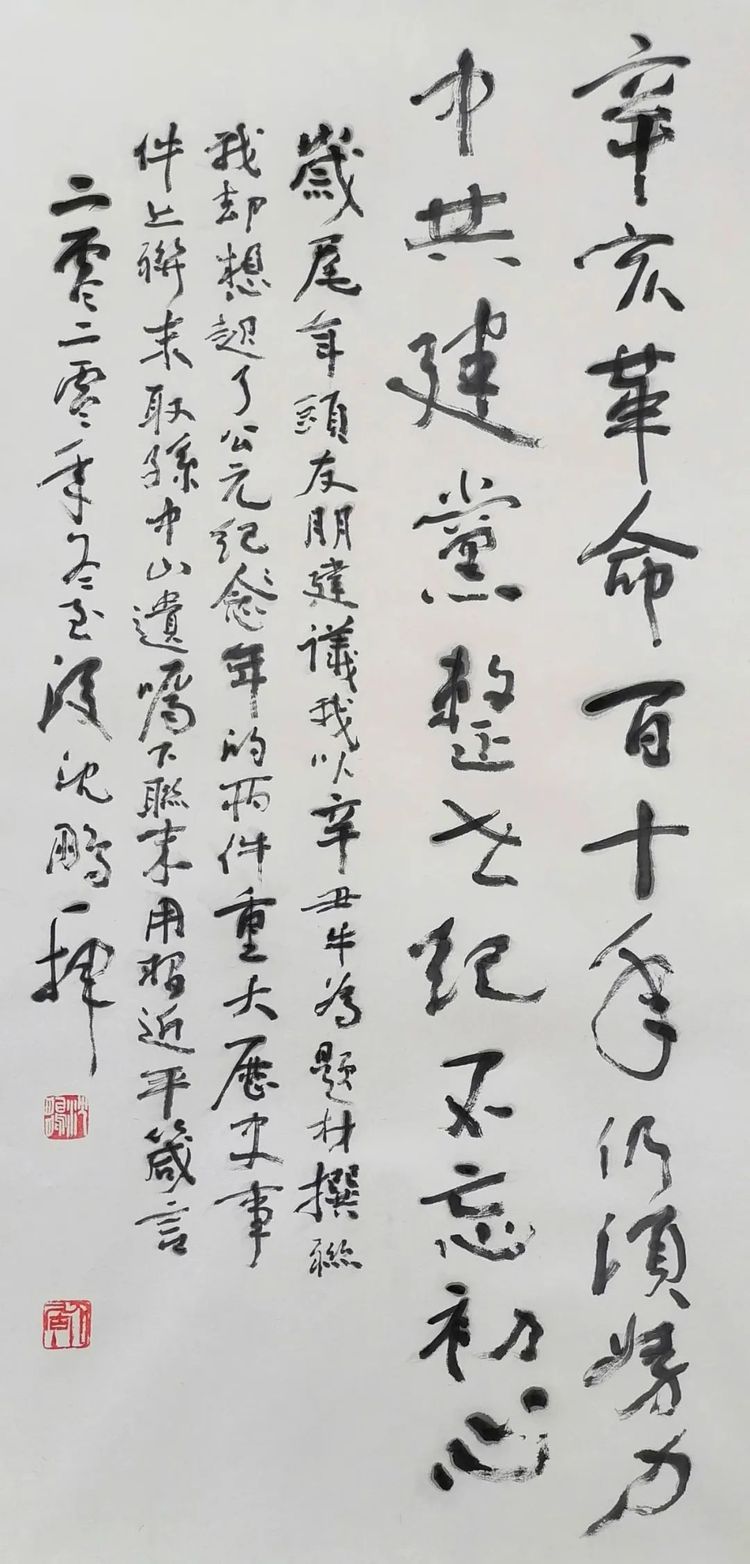 辛亥革命百十年仍須努力
中共建黨整世紀不忘初心
歲尾年頭友朋建議我以辛丑牛為題材撰聯
我却想起了公元紀念年的兩件重大歷史事
件上聯末取孫中山遺囑下聯末用習近平箴言
二零二零年冬至後沈鵬
沈鵬
介居